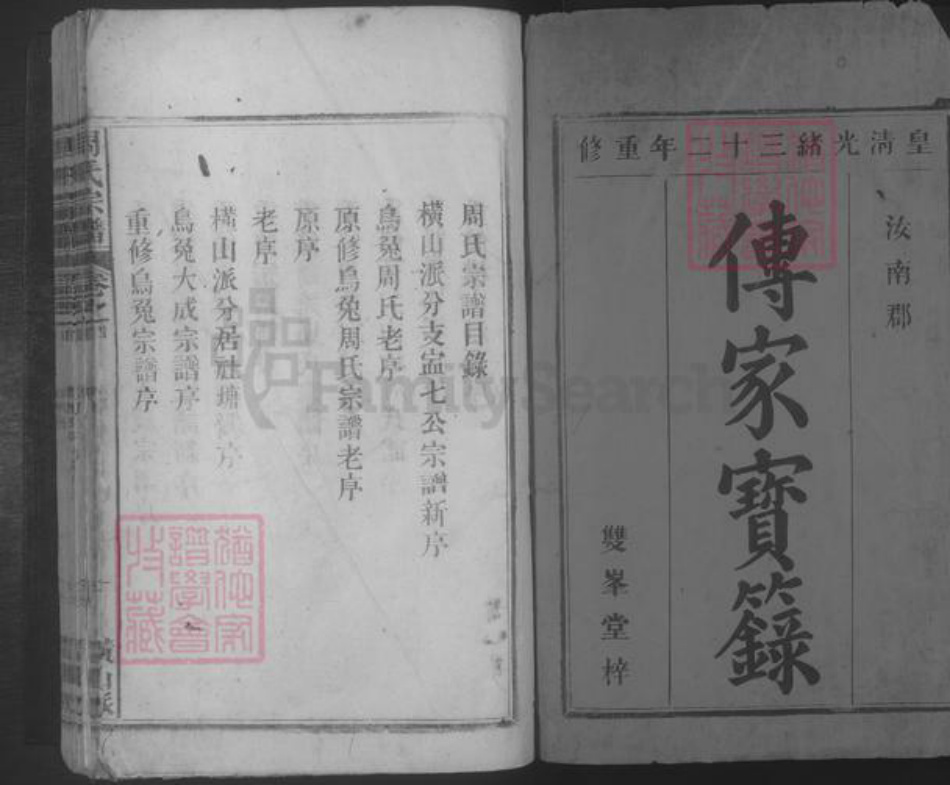 皇淸光緒三十二年重修
汝南郡
傳家寶籙
雙峯堂梓
周氏宗譜目錄
橫山派分支盆七公宗譜新序
鳥兔周氏老序
原修鳥兔周氏宗譜老序
原序
老序
橫山派分居社塘譜序
鳥兔大成宗譜序
重修鳥兔宗譜序
周氏宗譜
橫山派
FamilySearch